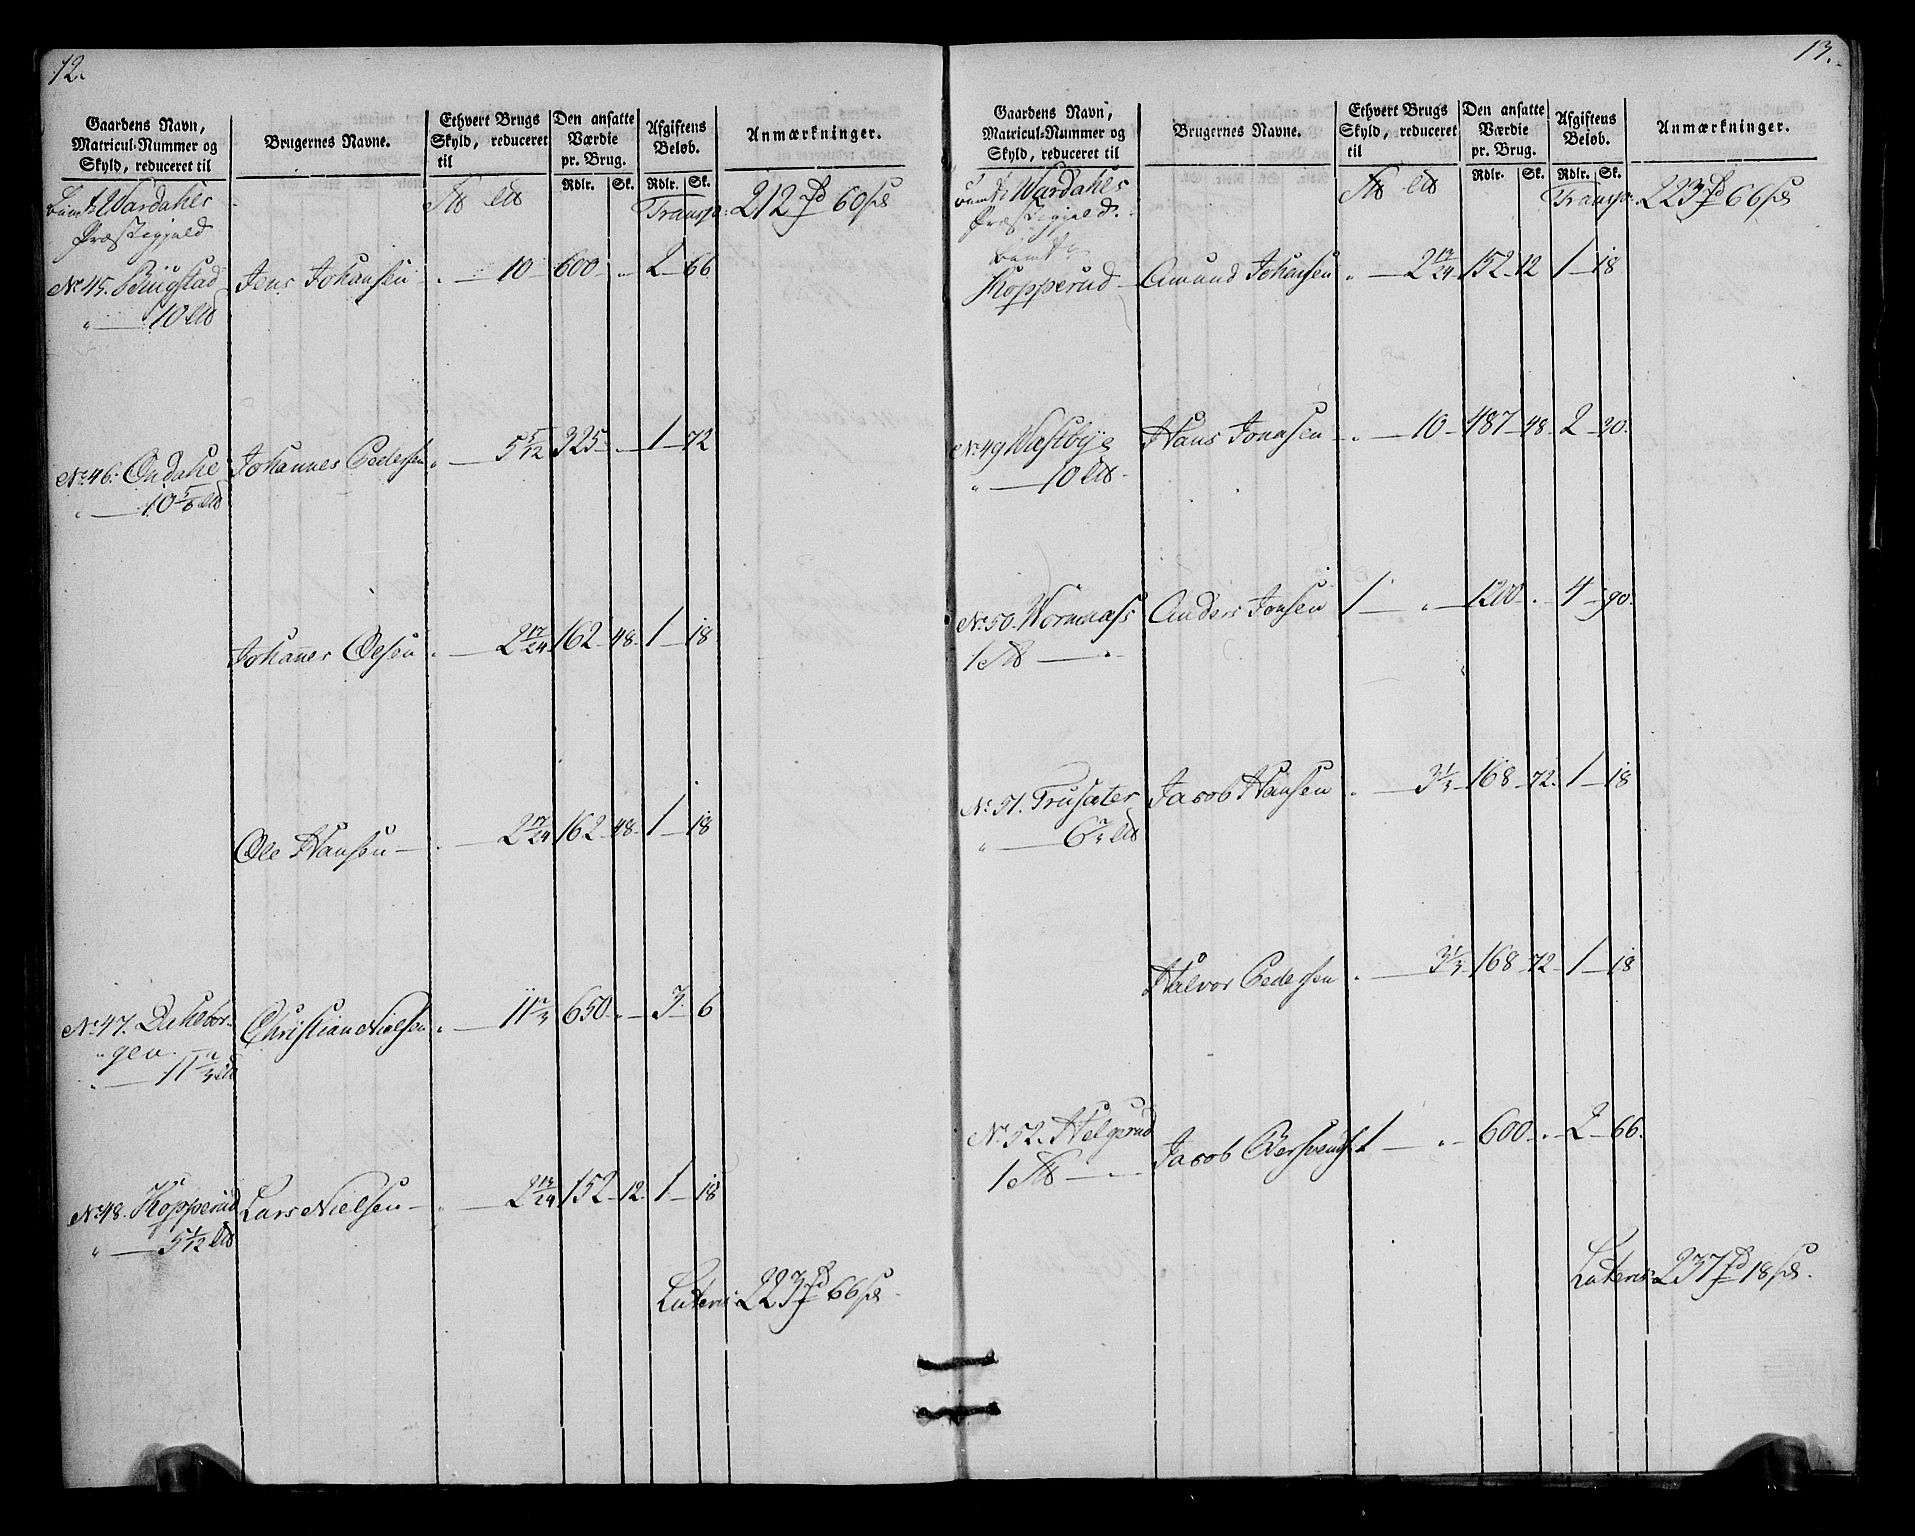 12.
Gaardens Navn, Matricul-Nummer og Skyld, reduceret til | Brugernes Navne. | Ethvert Brugs Skyld, reduceret til | Den ansatte Værdie pr. Brug. | Afgiftens Beløb. | Anmærkninger.
Rdlr. Sk. Rdlr. Sk.
Wardahls Transp: 212 60
Præstegjeld
No. 45. Bingstad Jens Johansen 10 600 " 2 66
" 10
No. 46. Ondahl Johannes Pedersen 5 5/12 325 " 1 72
" 10 5/6
Johannes Olsen 2 17/24 162 48 1 18
Ole Hansen 2 17/24 162 48 1 18
No. 47. Christian Nielsen 11 2/3 650 " 3 6
gen.
" 11 2/3
No. 48. Kopperud Lars Nielsen 2 13/24 152 12 1 18
" 5 1/12
Lateris 223 66
13.
Gaardens Navn, Matricul-Nummer og Skyld, reduceret til | Brugernes Navne. | Ethvert Brugs Skyld, reduceret til | Den ansatte Værdie pr. Brug. | Afgiftens Beløb. | Anmærkninger.
Rdlr. Sk. Rdlr. Sk.
Wardahls Transp: 223 66
Præstegjeld.
Kopperud Amund Johansen 2 13/24 152 12 1 18
No. 49 Westbye Hans Jonasen 10 487 48 2 20.
" 10
No. 50. Wormnæss Anders Jonsen 1 " 1200 " 4 90.
1
No. 51. Trusæter Jacob Hansen 3 1/3 168 72 1 18
" 6 2/3
Halvor Pedersen 3 1/3 168 72 1 18
No. 52. Helgerud Jacob 1 " 600 " 2 66.
1
Lateris 237 18